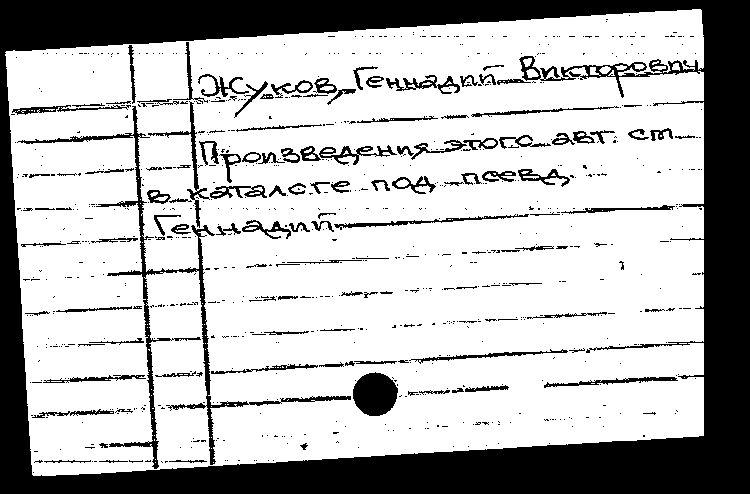 Жуков, Геннадий Викторович
Произведения этого авт. см.
в каталоге под псевд.:
Геннадий